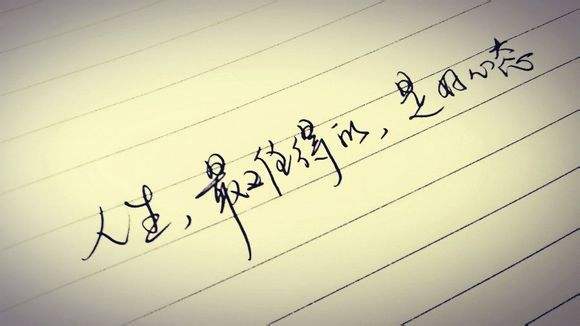 人生,最值得的,是好心态